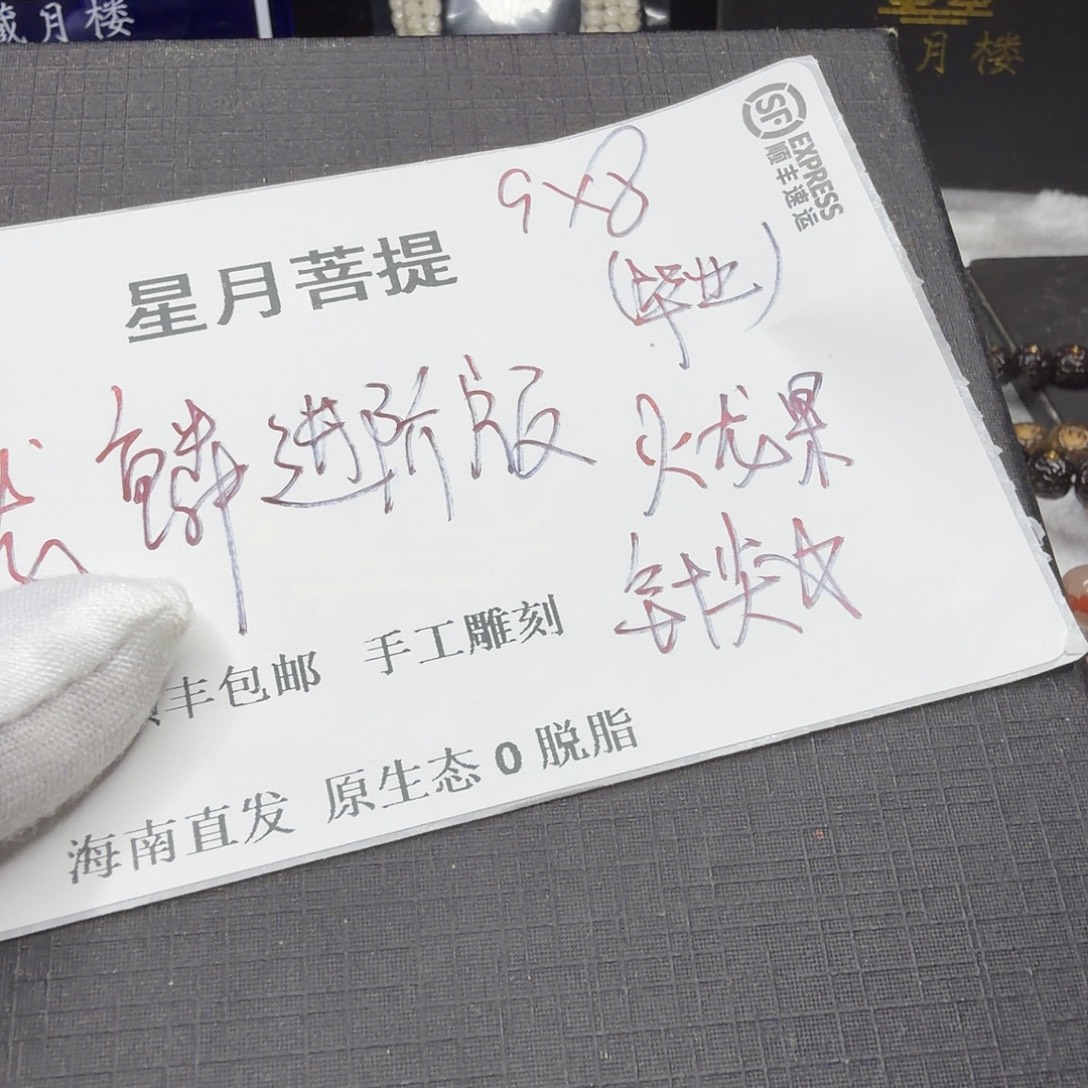 藏月楼
月楼
SF EXPRESS
顺丰速运
9×8
星月菩提
(毕业)
鳞进阶版
火龙果
针尖火
丰包邮 手工雕刻
海南直发 原生态0脱脂